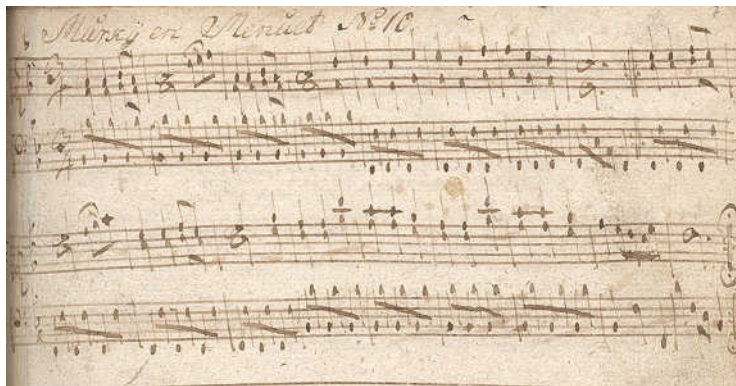 Murky en Menuet No: 10.